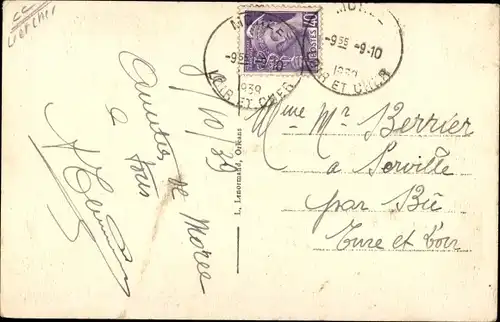 CC
M
9 35
-9-10
1939
LOIR ET CHER
POSTES
40
9 35
-9-10
1939
LOIR ET CHER
9/10/39
Amitiés de Morée
a tous
L. Lenormand, Orléans
Mme Mr Berrier
a Serville
par Bû
Eure et Loir